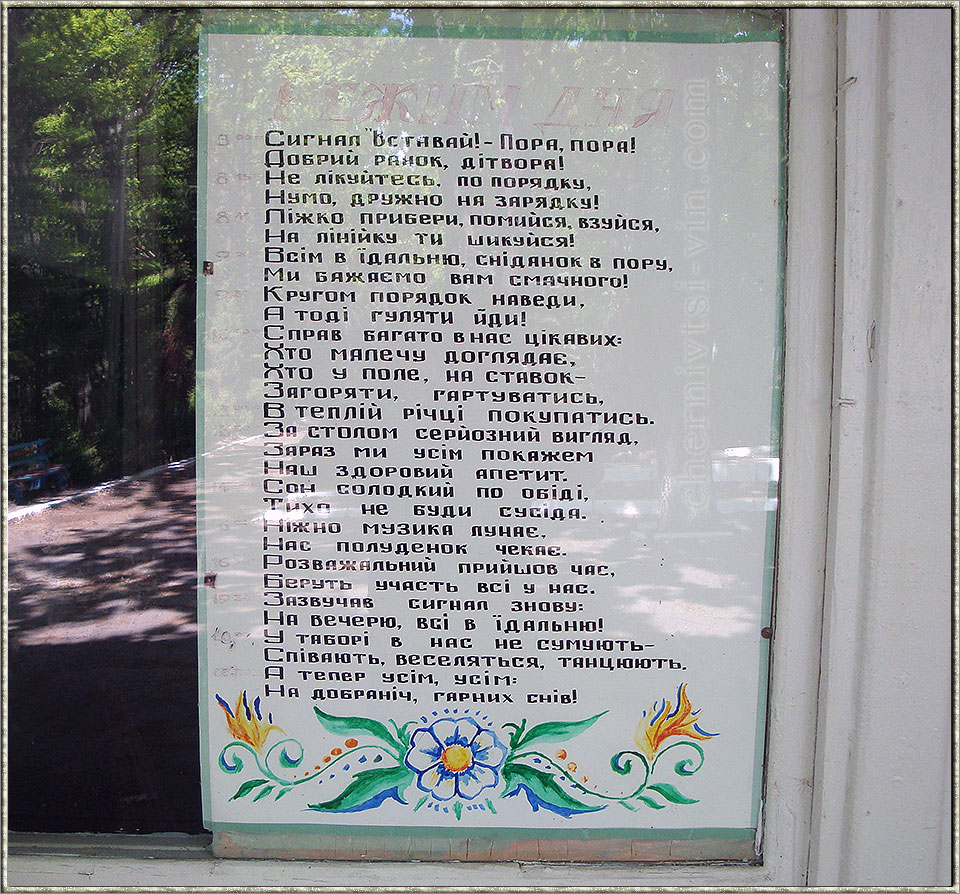 РЕЖИМ ДНЯ
Сигнал "Вставай!- Пора, пора!
Добрий ранок, дітвора!
Не лікуйтесь. по порядку,
Нумо, дружно на зарядку!
Ліжко прибери, помийся, взуйся,
На лінійку ти шикуйся!
Всім в їдальню, сніданок в пору,
Ми бажаємо вам смачного!
Кругом порядок наведи,
А тоді гуляти йди!
Справ багато в нас цікавих:
Хто малечу доглядає,
Хто у поле, на ставок-
Загоряти, гартуватись,
В теплій річці покупатись.
За столом серйозний вигляд,
Зараз ми усім покажем
Наш здоровий апетит.
Сон солодкий по обіді,
Тихо не буди сусіда.
Ніжно музика лунає,
Нас полуденок чекає.
Розважальний прийшов час,
Беруть участь всі у нас.
Зазвучав сигнал знову:
На вечерю, всі в їдальню!
У таборі в нас не сумують-
Співають, веселяться, танцюють.
А тепер усім, усім:
На добраніч, гарних снів!
chernivtsi-vin.com